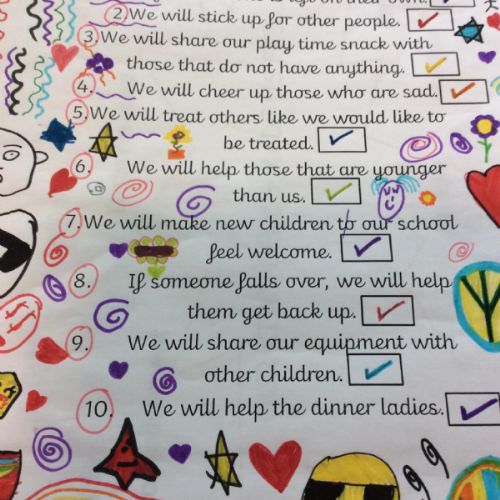 left on their own.
2. We will stick up for other people.
3. We will share our play time snack with
those that do not have anything.
4. We will cheer up those who are sad.
5. We will treat others like we would like to
be treated.
6. We will help those that are younger
than us.
7. We will make new children to our school
feel welcome.
8. If someone falls over, we will help
them get back up.
9. We will share our equipment with
other children.
10. We will help the dinner ladies.